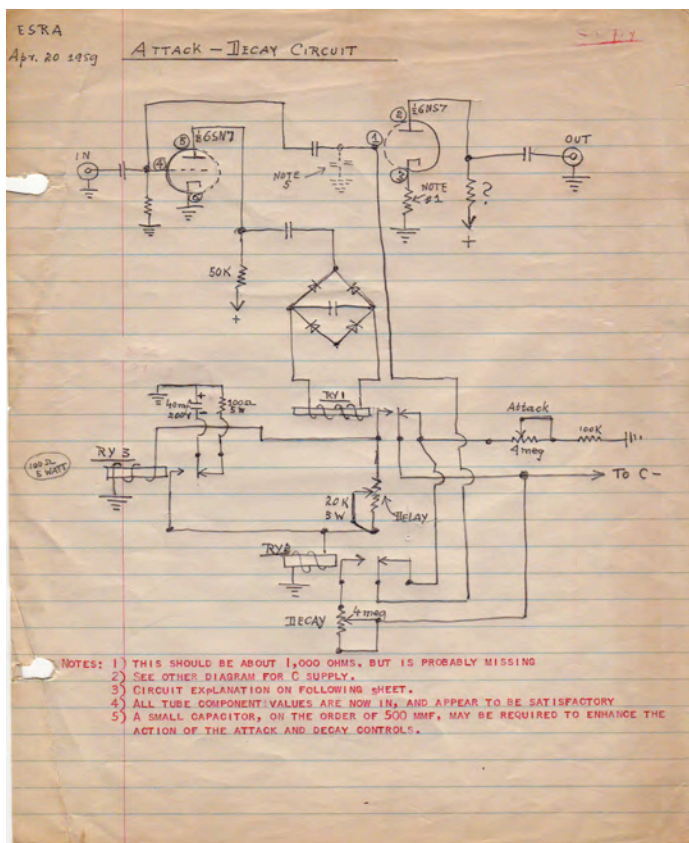 ESRA
Apr. 20 1959
ATTACK – DECAY CIRCUIT
Copy
⑤ ½6SN7
② ½6NS7
IN
④
①
OUT
NOTE
5
③
NOTE
#1
?
+
50K
+
RY1
40mf
200V
+
-
100Ω
5W
Attack
4meg
100K
RY 3
100Ω
5 WATT
TO C-
20K
3W
DELAY
DECAY
4meg
NOTES: 1) THIS SHOULD BE ABOUT 1,000 OHMS, BUT IS PROBABLY MISSING
2) SEE OTHER DIAGRAM FOR C SUPPLY.
3) CIRCUIT EXPLANATION ON FOLLOWING SHEET.
4) ALL TUBE COMPONENT VALUES ARE NOW IN, AND APPEAR TO BE SATISFACTORY
5) A SMALL CAPACITOR, ON THE ORDER OF 500 MMF, MAY BE REQUIRED TO ENHANCE THE
ACTION OF THE ATTACK AND DECAY CONTROLS.